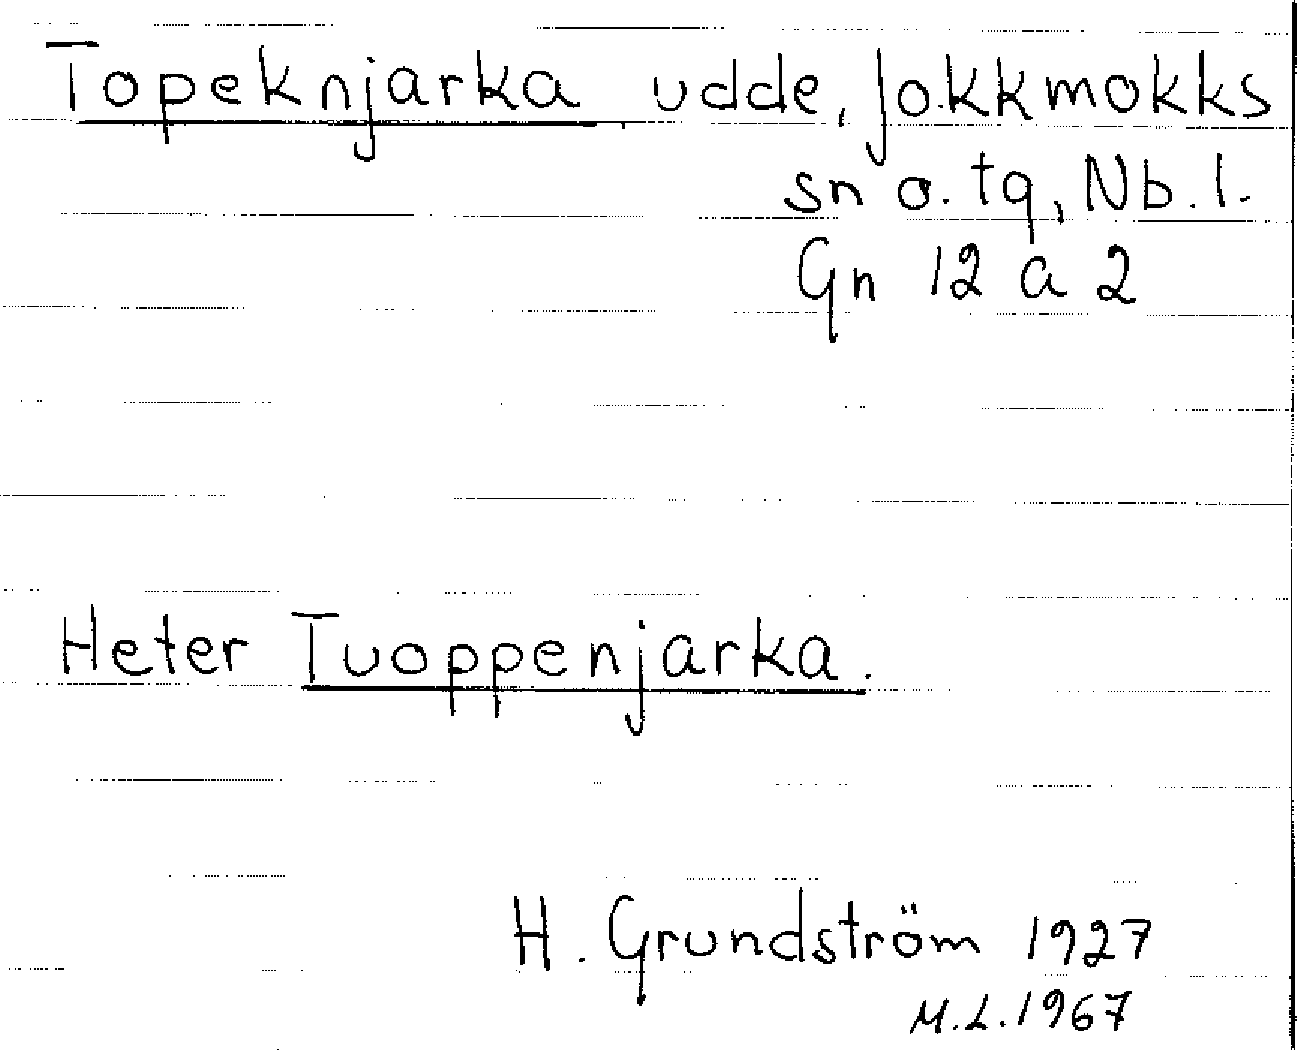 Topeknjarka udde, Jokkmokks
sn o. tg, Nb. l.
Gn 12 a 2
Heter Tuoppenjarka.
H. Grundström 1927
M.L. 1967